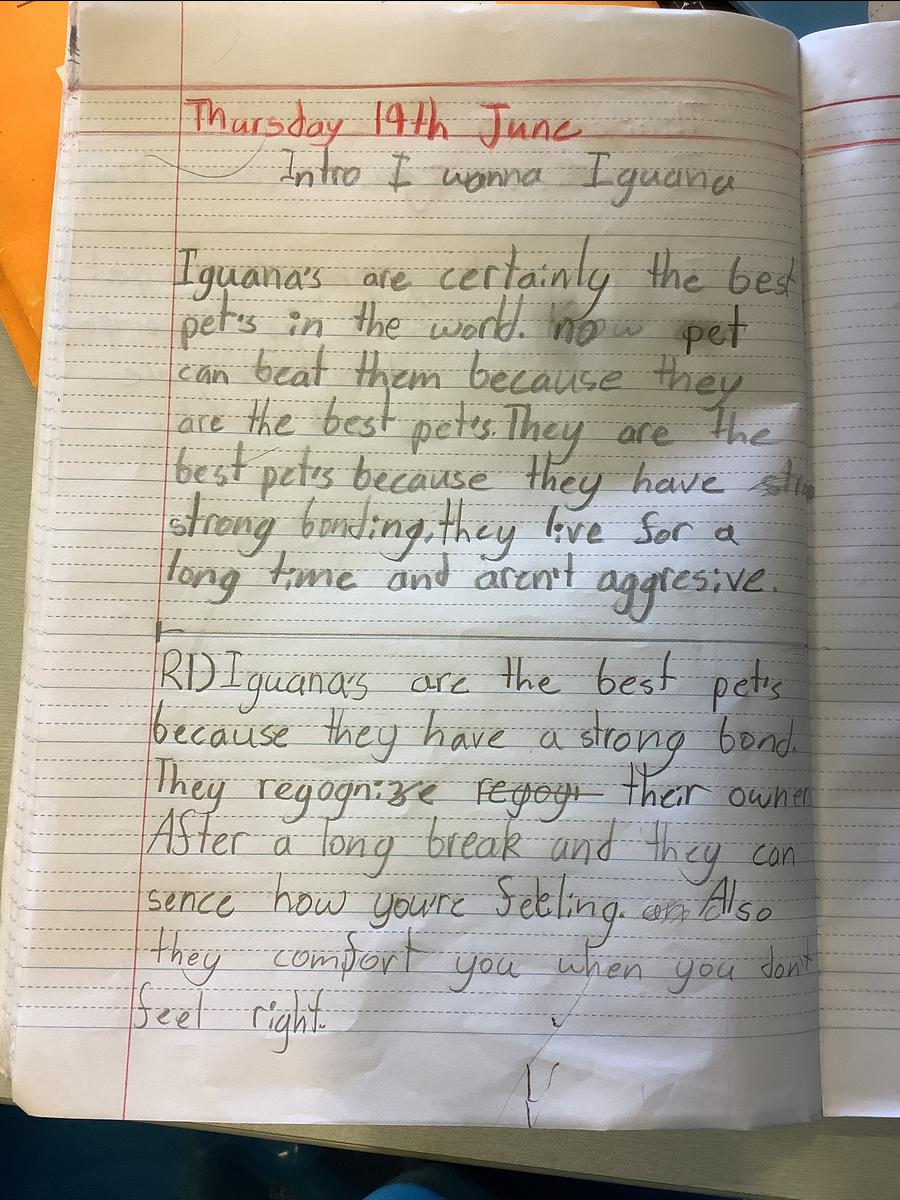 Thursday 14th June
Intro I wanna Iguana
Iguana's are certainly the best
pet's in the world. now pet
can beat them because they
are the best pet's. They are the
best pet's because they have
strong bonding, they live for a
long time and aren't aggresive.
R1) Iguana's are the best pet's
because they have a strong bond.
They regognize regogi their owner
After a long break and they can
sence how you're feeling. Also
they comfort you when you don't
feel right.